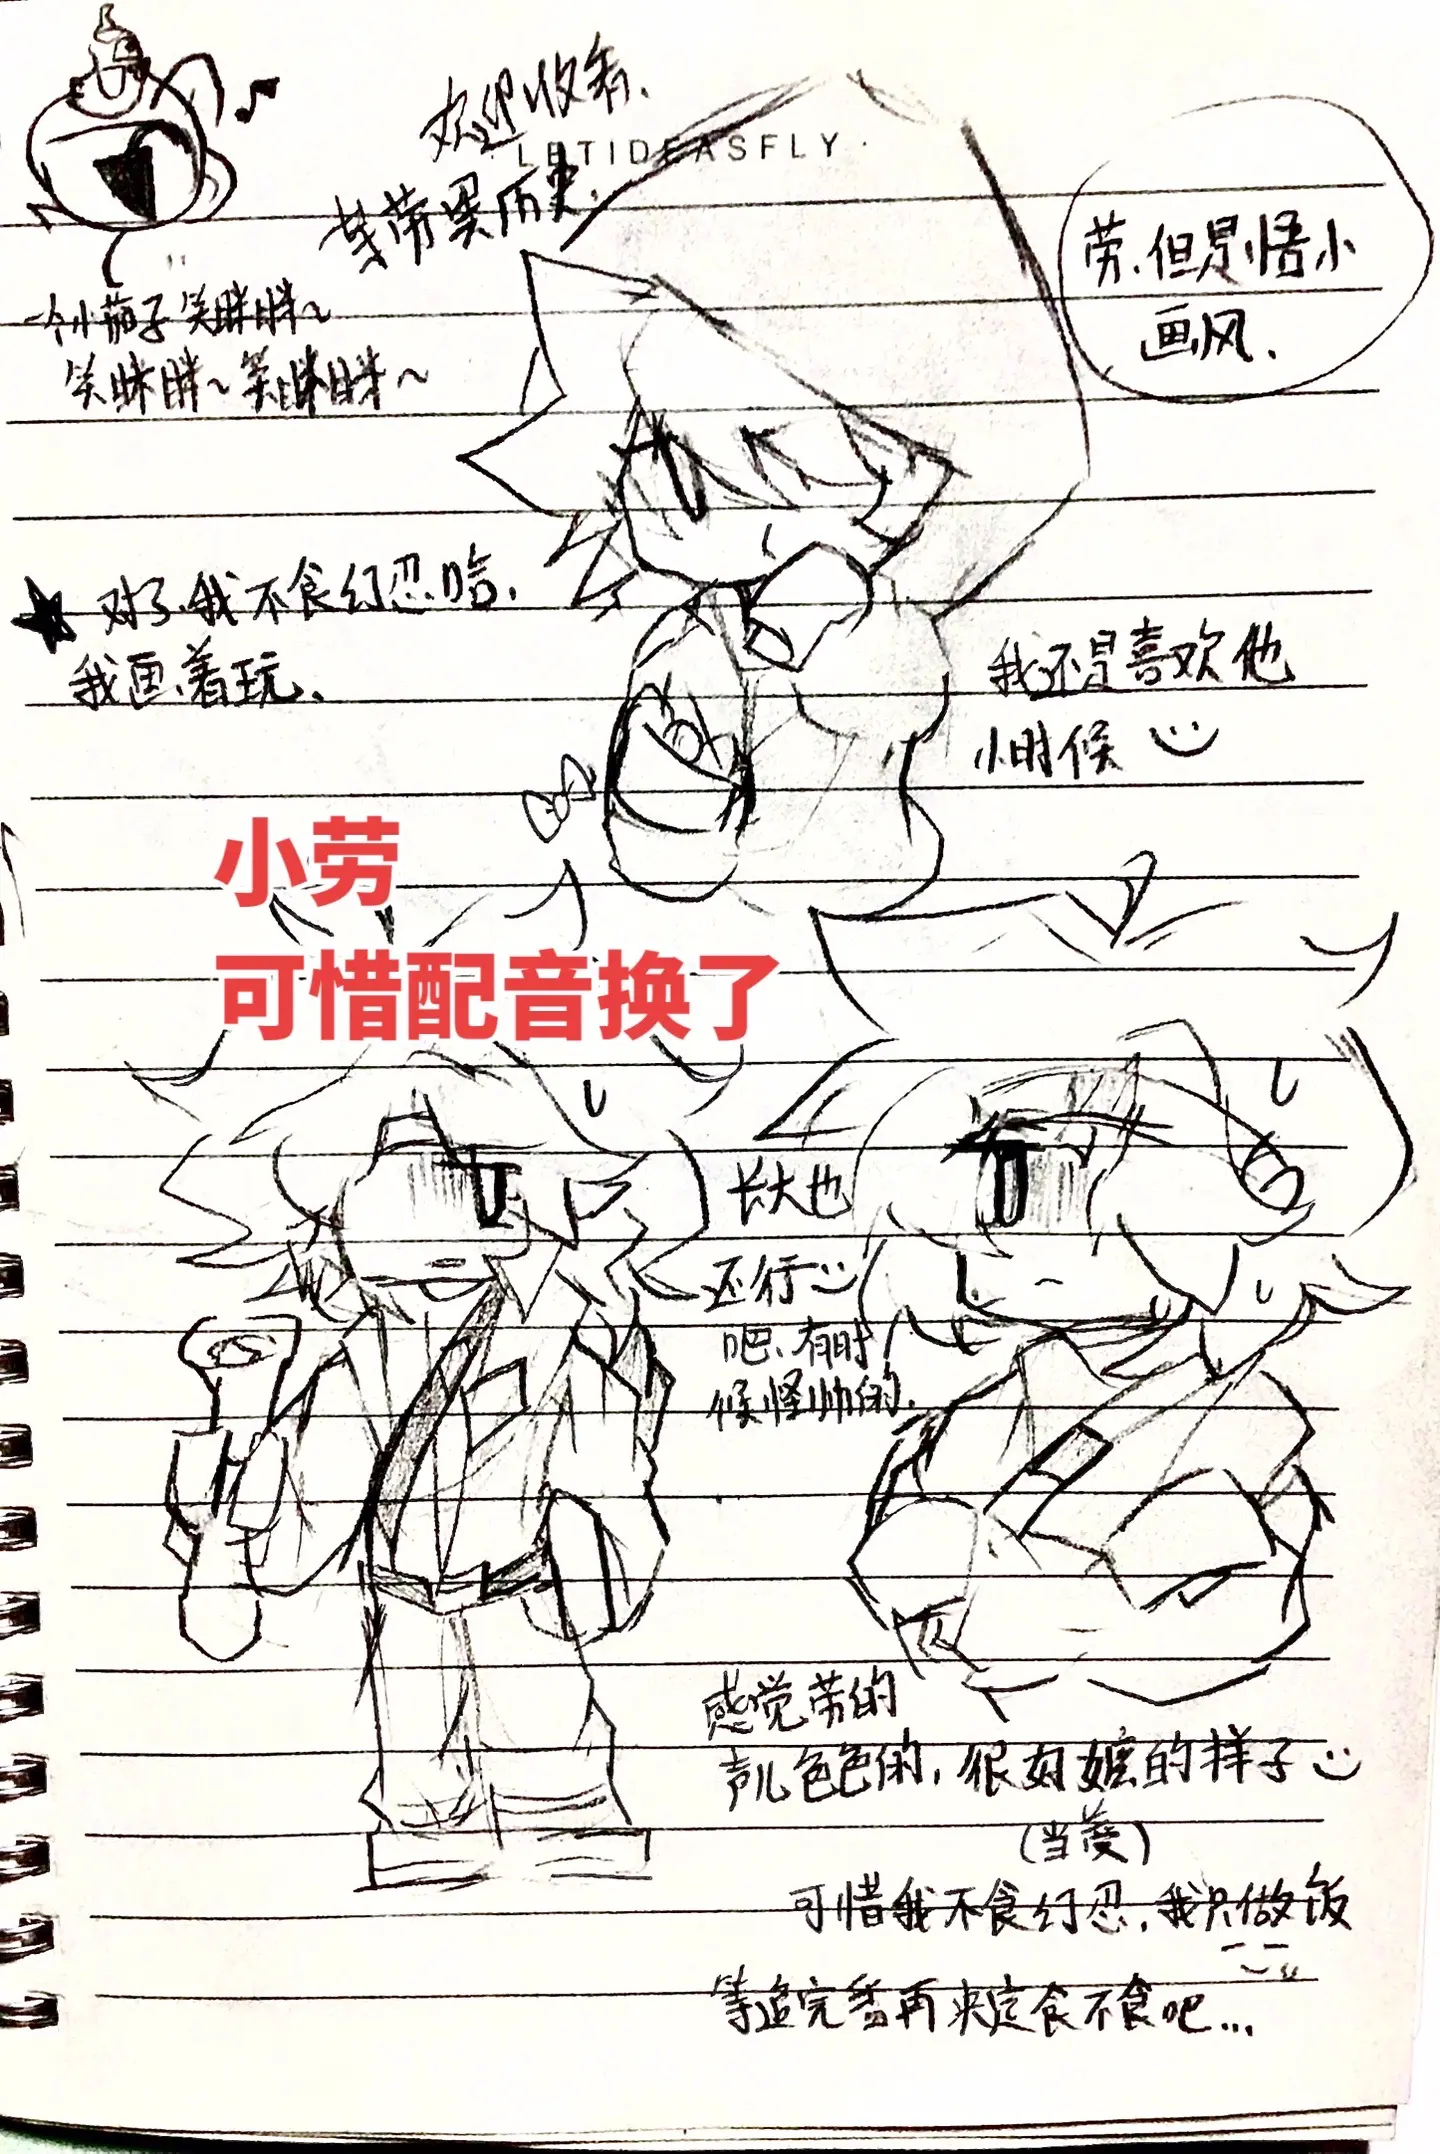 欢迎收看.
·LETIDEASFLY·
某劳黑历史.
劳.但是悟小
画风.
一个小茄子笑眯眯~
笑眯眯~笑眯眯~
★对了.我不食幻忍哈.
我画着玩.
我还是喜欢他
小时候
小劳
可惜配音换了
长大也
还行
吧.有时
候怪帅的.
感觉劳的
声儿色色的,很好嫖的样子
(当菱)
可惜我不食幻忍,我只做饭
等追完番再决定食不食吧...